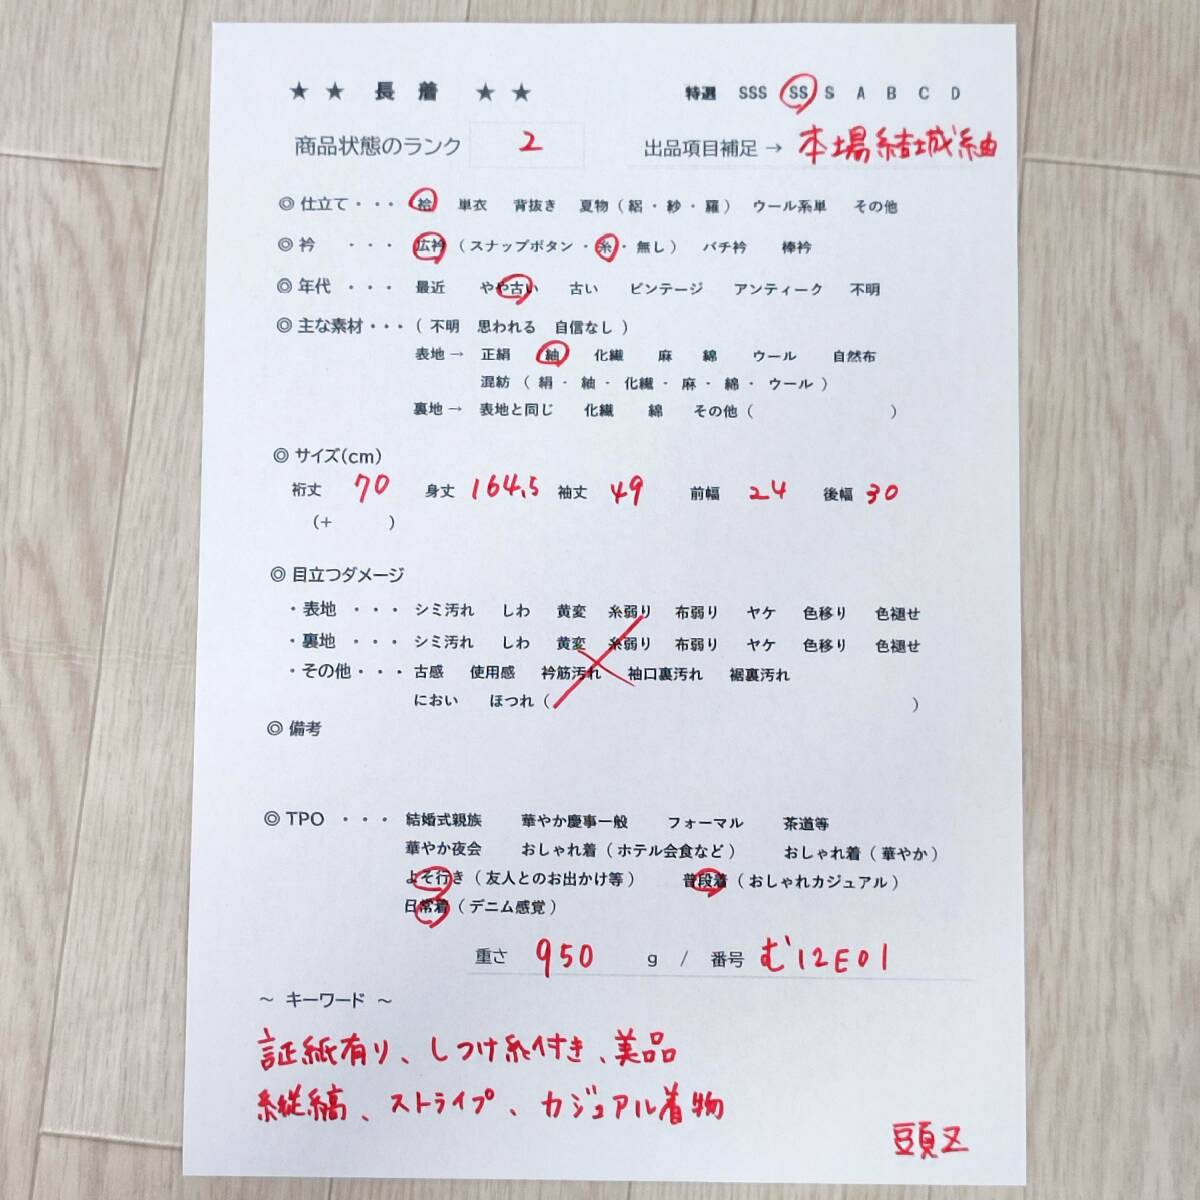 ★ ★ 長 着 ★ ★
特選 SSS SS S A B C D
商品状態のランク 2
出品項目補足 → 本場結城紬
◎ 仕立て・・・ 袷 単衣 背抜き 夏物（絽・紗・羅） ウール系単 その他
◎ 衿 ・・・ 広衿（スナップボタン・糸・無し） バチ衿 棒衿
◎ 年代 ・・・ 最近 やや古い 古い ビンテージ アンティーク 不明
◎ 主な素材・・・（ 不明 思われる 自信なし ）
表地 → 正絹 紬 化繊 麻 綿 ウール 自然布
混紡（ 絹・紬・化繊・麻・綿・ウール ）
裏地 → 表地と同じ 化繊 綿 その他（ ）
◎ サイズ(cm)
裄丈 70 身丈 164.5 袖丈 49 前幅 24 後幅 30
（＋ ）
◎ 目立つダメージ
・表地 ・・・ シミ汚れ しわ 黄変 糸弱り 布弱り ヤケ 色移り 色褪せ
・裏地 ・・・ シミ汚れ しわ 黄変 糸弱り 布弱り ヤケ 色移り 色褪せ
・その他・・・ 古感 使用感 衿筋汚れ 袖口裏汚れ 裾裏汚れ
におい ほつれ（ ）
◎ 備考
◎ TPO ・・・ 結婚式親族 華やか慶事一般 フォーマル 茶道等
華やか夜会 おしゃれ着（ホテル会食など） おしゃれ着（華やか）
よそ行き（友人とのお出かけ等） 普段着（おしゃれカジュアル）
日常着（デニム感覚）
重さ 950 g / 番号 む12E01
～ キーワード ～
証紙有り、しつけ糸付き、美品
縦縞、ストライプ、カジュアル着物